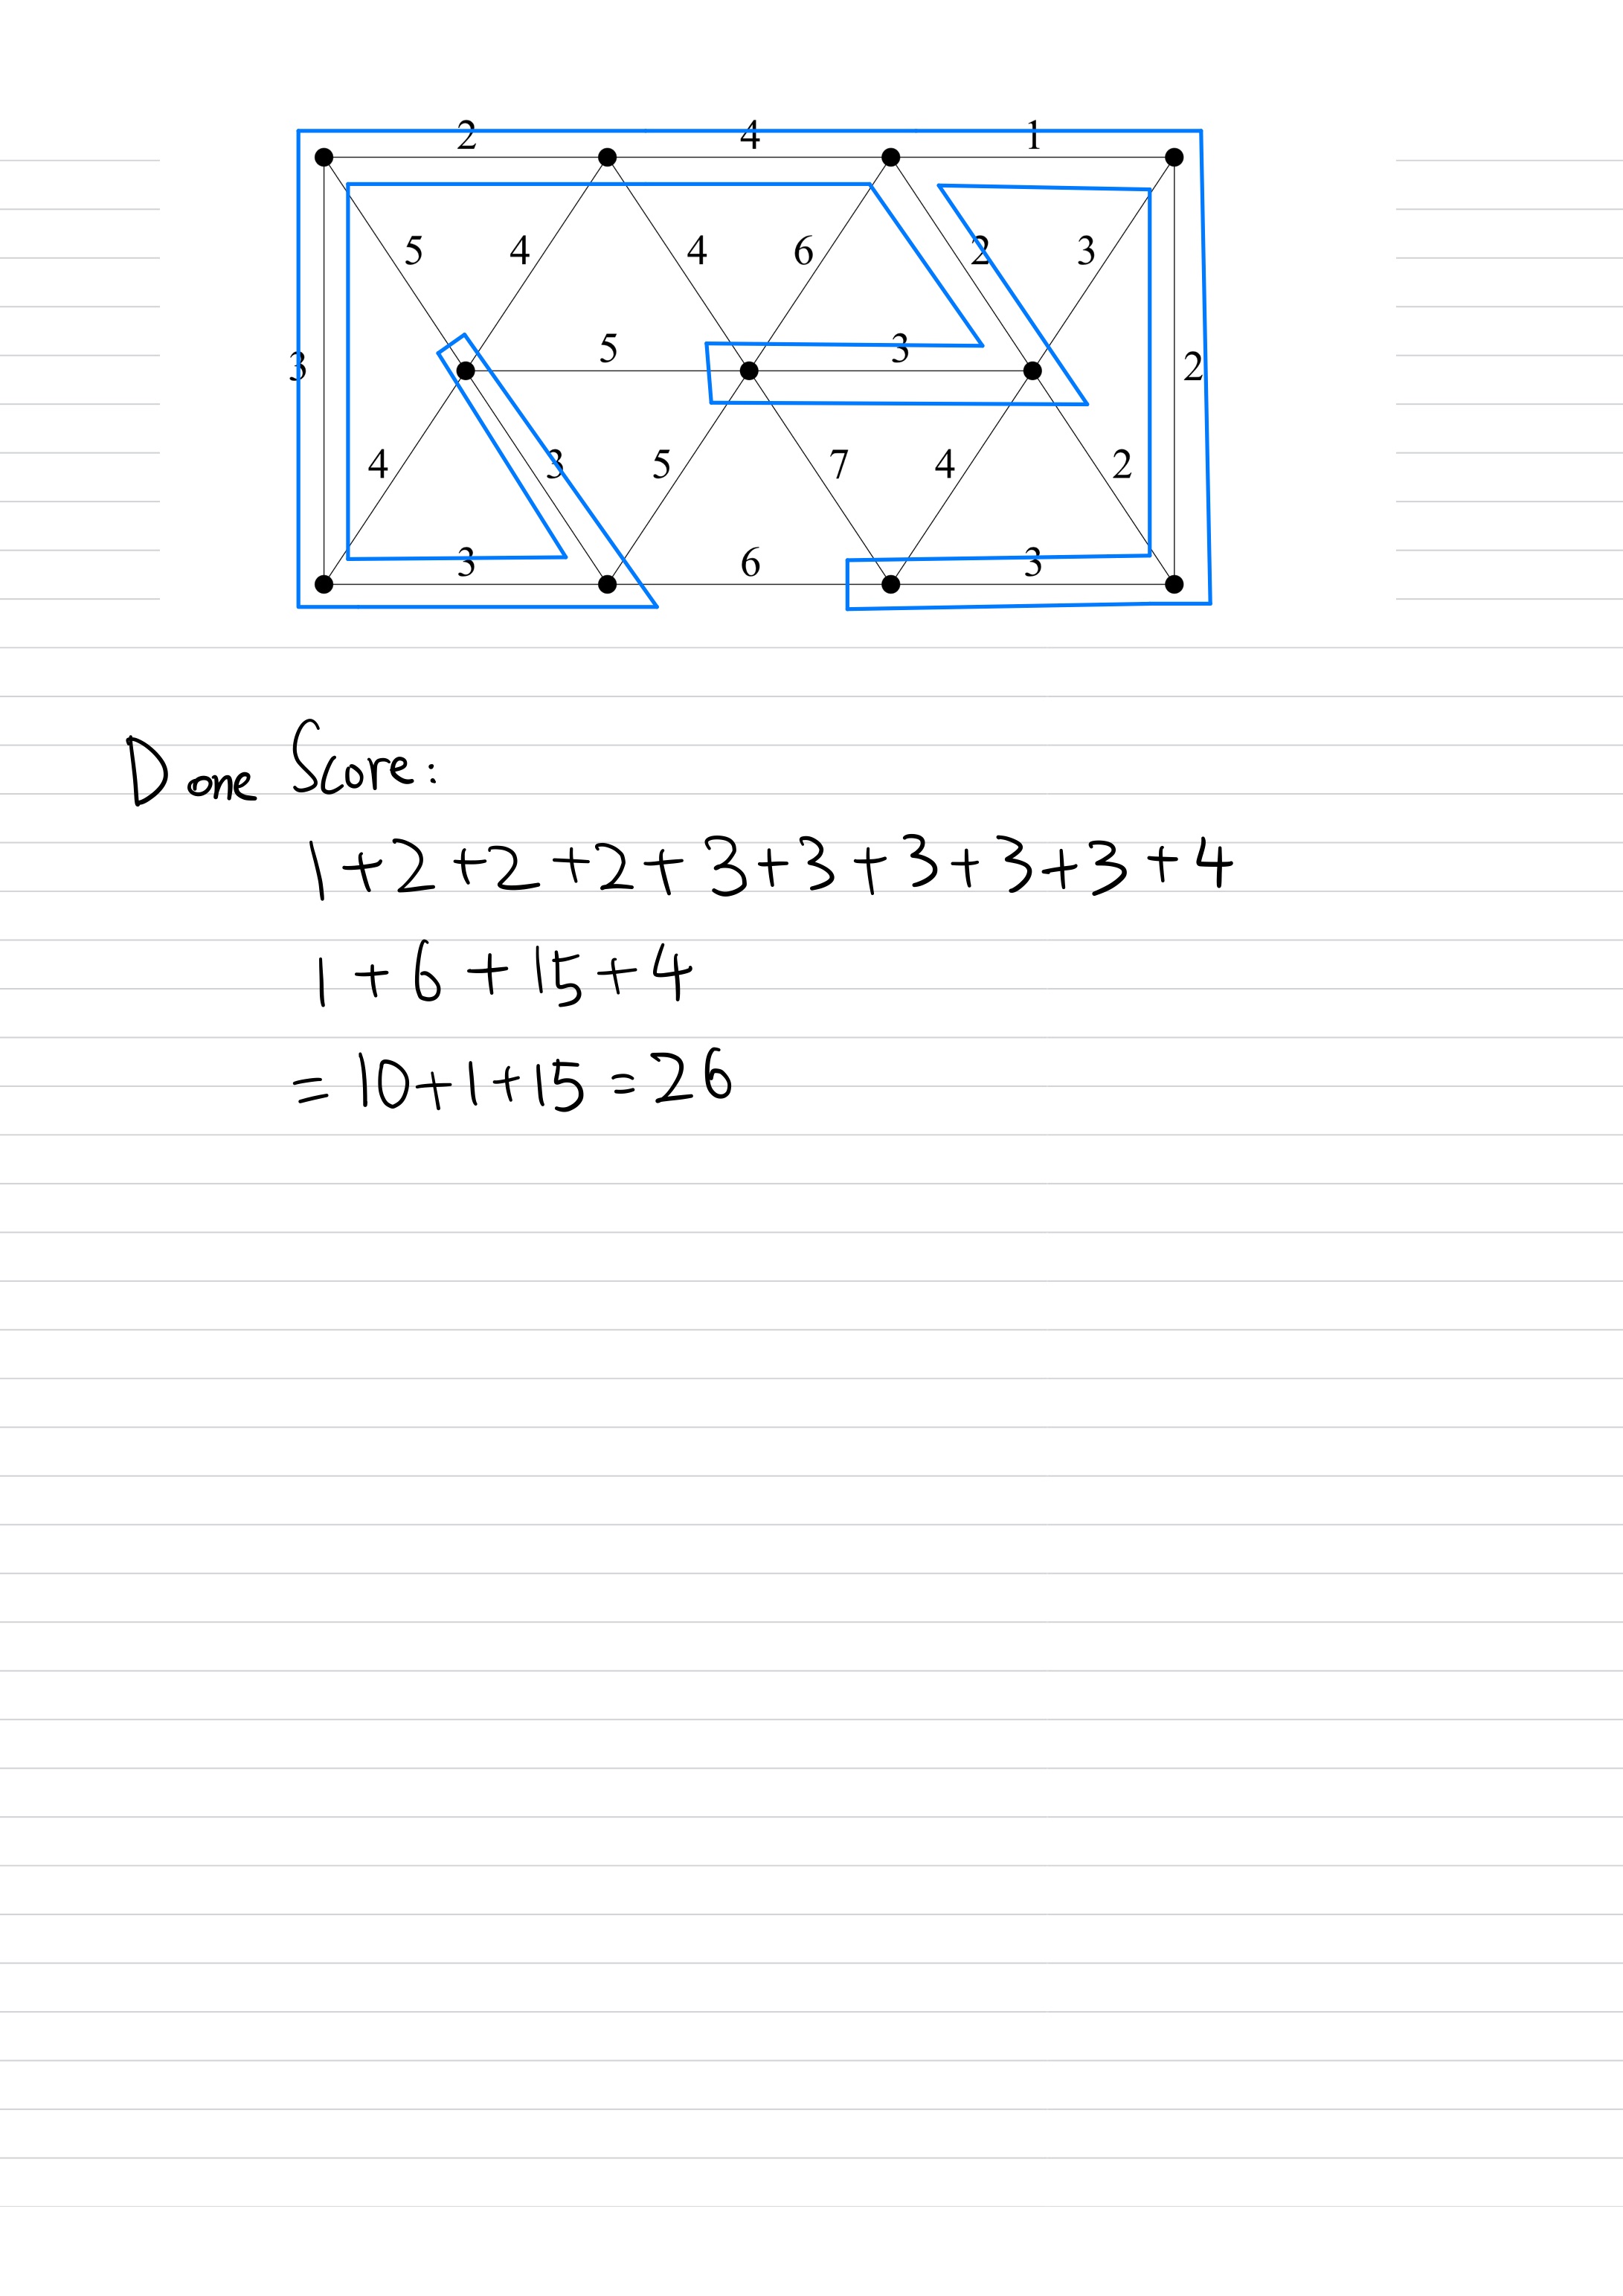 2 4 1
5 4 4 6 2 3
3 5 3 2
4 3 5 7 4 2
3 6 3
Done Score:
1+2+2+2+3+3+3+3+3+4
1+6+15+4
=10+1+15=26